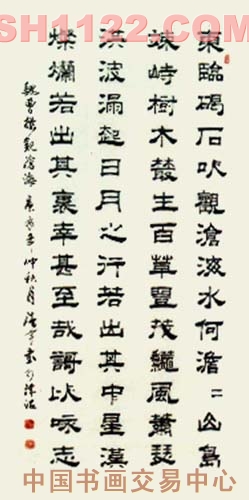 SH1122.COM
東臨碣石以觀滄海水何澹〻山島
竦峙樹木叢生百草豐茂風蕭瑟
洪波涌起日月之行若出其中星漢
燦爛若出其裏幸甚至哉謌以咏志
魏曹操觀滄海 仲秋月
中国书画交易中心